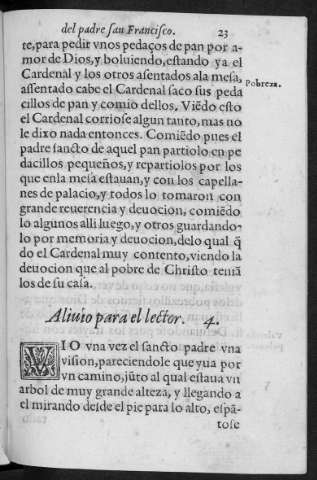 del padre san Francisco. 23
te, para pedir vnos pedaços de pan por a-
mor de Dios, y boluiendo, estando ya el
Cardenal y los otros asentados ala mesa,
assentado cabe el Cardenal saco sus peda
cillos de pan y comio dellos. Viẽdo esto
el Cardenal corriose algun tanto, mas no
le dixo nada entonces. Comiẽdo pues el
padre sancto de aquel pan partiolo en pe
dacillos pequeños, y repartiolos por los
que enla mesa estauan, y con los capella-
nes de palacio, y todos lo tomaron con
grande reuerencia y deuocion, comiẽdo
lo algunos alli luego, y otros guardando-
lo por memoria y deuocion, delo qual q̃
do el Cardenal muy contento, viendo la
deuocion que al pobre de Christo teniã
los de su casa.
Pobreza.
Aliuio para el lector. 4.
VIO vna vez el sancto padre vna
vision, pareciendole que yua por
vn camino, jũto al qual estaua vn
arbol de muy grande alteza, y llegando a
el mirando desde el pie para lo alto, espã-
tose